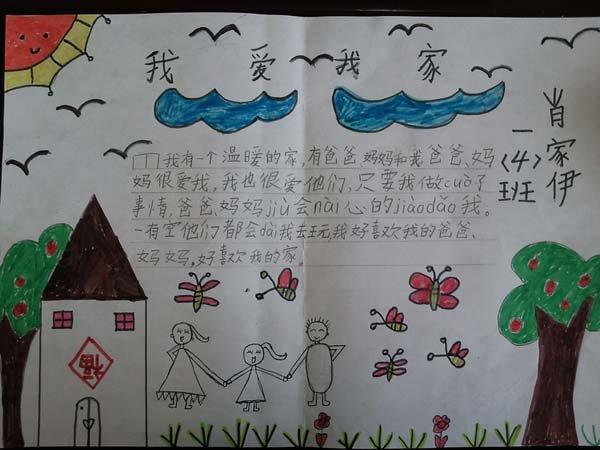 我爱我家
肖家伊
一〈4〉班
我有一个温暖的家,有爸爸、妈妈和我爸爸、妈
妈很爱我,我也很爱他们,只要我做cuò了
事情,爸爸、妈妈jiù会nài心的jiàodǎo我。
一有空他们都会dài我去玩,我好喜欢我的爸爸、
妈妈,好喜欢我的家。
福